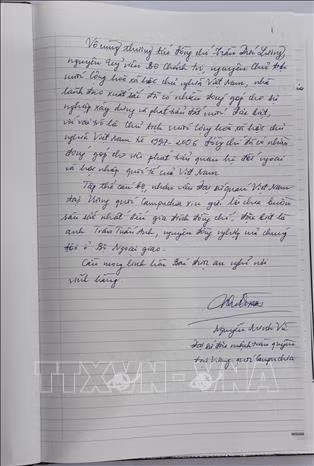 Vô cùng thương tiếc đồng chí Trần Đức Lương,
nguyên Ủy viên Bộ Chính trị, nguyên Chủ tịch
nước Cộng hoà xã hội chủ nghĩa Việt Nam, nhà
lãnh đạo xuất sắc đã có nhiều đóng góp cho sự
nghiệp xây dựng và phát triển đất nước. Đặc biệt,
với vai trò là Chủ tịch nước Cộng hoà xã hội chủ
nghĩa Việt Nam từ 1997-2006 đồng chí đã có nhiều
đóng góp cho việc phát triển quan hệ đối ngoại
và hội nhập quốc tế của Việt Nam.
Tập thể cán bộ, nhân viên Đại sứ quán Việt Nam
tại Vương quốc Campuchia xin gửi lời chia buồn
sâu sắc nhất đến gia đình đồng chí, đặc biệt là
anh Trần Tuấn Anh, nguyên đồng nghiệp của chúng
tôi ở Bộ Ngoại giao.
Cầu mong linh hồn Bác được an nghỉ nơi
vĩnh hằng.
Nguyễn Minh Vũ
Đại sứ đặc mệnh toàn quyền
tại Vương quốc Campuchia
TTXVN-VNA